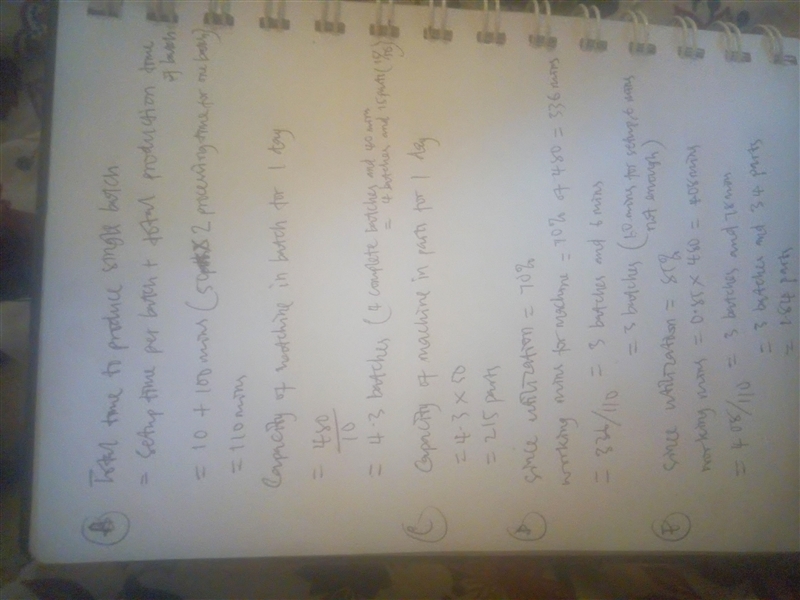 B Total time to produce single batch
= setup time per batch + total production time of batch
= 10 + 100 mins (50 x 2 processing time for one batch)
= 110 mins
Capacity of machine in batch for 1 day
= 480
10
= 4.3 batches (4 complete batches and 40 min
= 4 batches and 15 parts
C Capacity of machine in parts for 1 day
= 4.3 x 50
= 215 parts
D Since utilization = 70%
working mins for machine = 70% of 480 = 336 mins
= 336/110 = 3 batches and 6 mins
= 3 batches (10 mins for setup, 6 mins
not enough)
E Since utilization = 85%
working mins = 0.85 x 480 = 408 mins
= 408/110 = 3 batches and 78 min
= 3 batches and 34 parts
= 184 parts